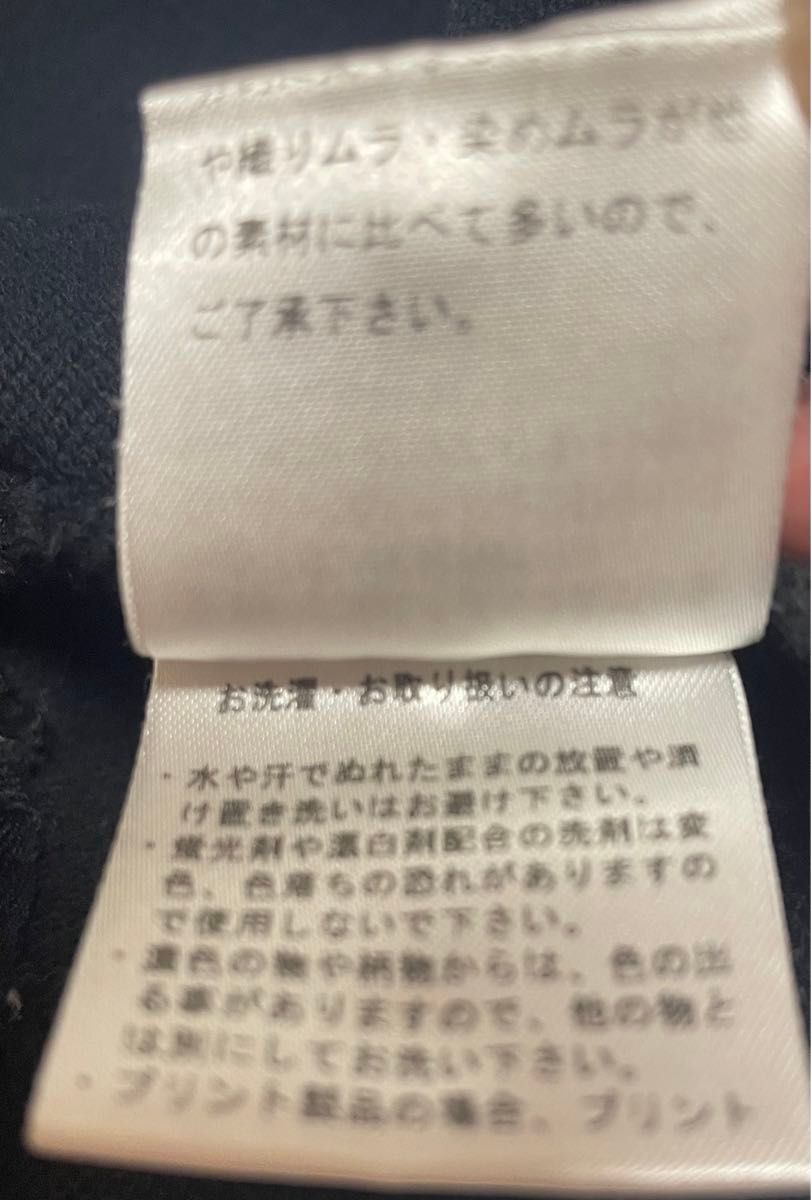 や織りムラ・染めムラが他
の素材に比べて多いので、
ご了承下さい。
お洗濯・お取り扱いの注意
・水や汗でぬれたままの放置や漬
け置き洗いはお避け下さい。
・蛍光剤や漂白剤配合の洗剤は変
色、色落ちの恐れがありますの
で使用しないで下さい。
・濃色の物や柄物からは、色の出
る事がありますので、他の物と
は別にしてお洗い下さい。
・プリント製品の場合、プリント